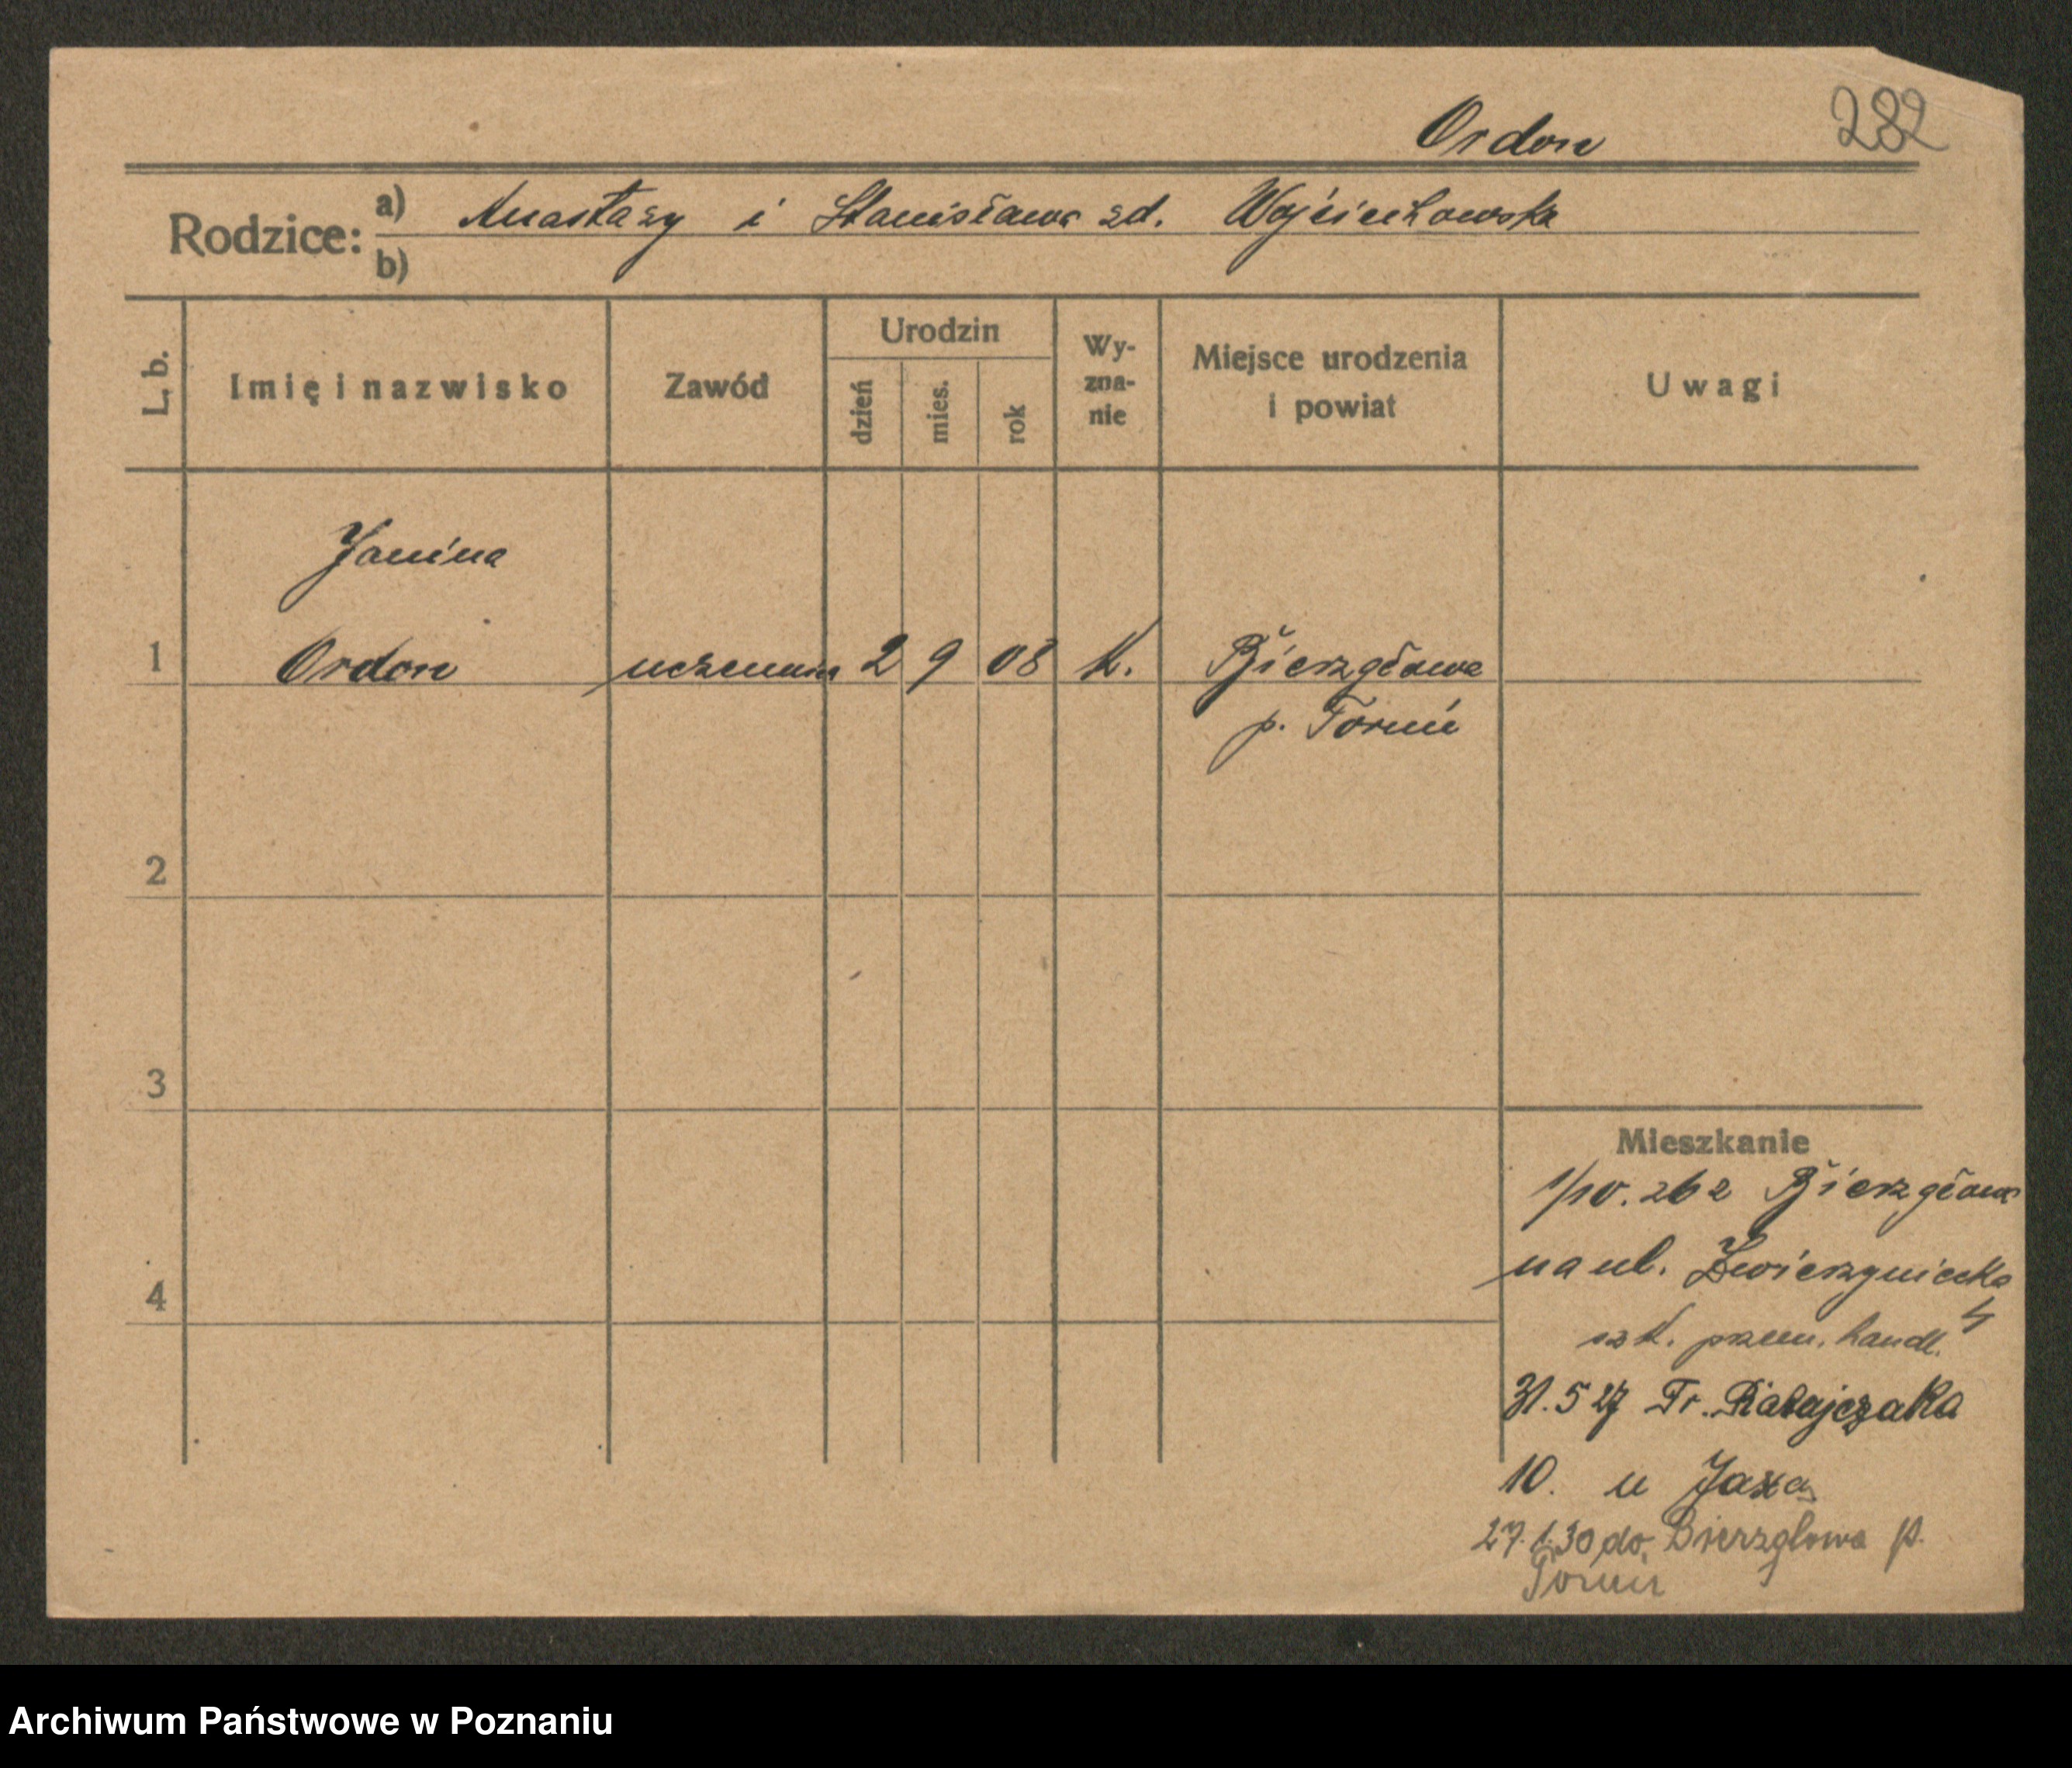 Ordon 282
Rodzice: a) Anastazy i Stanisława zd. Wojciechowska
b)
L. b.
Imię i nazwisko
Zawód
Urodzin
dzień
mies.
rok
Wy-
zna-
nie
Miejsce urodzenia
i powiat
Uwagi
Janina
1 Ordon uczennica 2 9 08 k. Bierzgłowa
p. Toruń
2
3
4
Mieszkanie
1/10. 26 z Bierzgłowa
na ul. Zwierzyniecka
szk. przem. handl.
31.5 27 Fr. Ratajczaka
10. u Jaxa
27.1.30 do Bierzglowa p.
Toruń
Archiwum Państwowe w Poznaniu